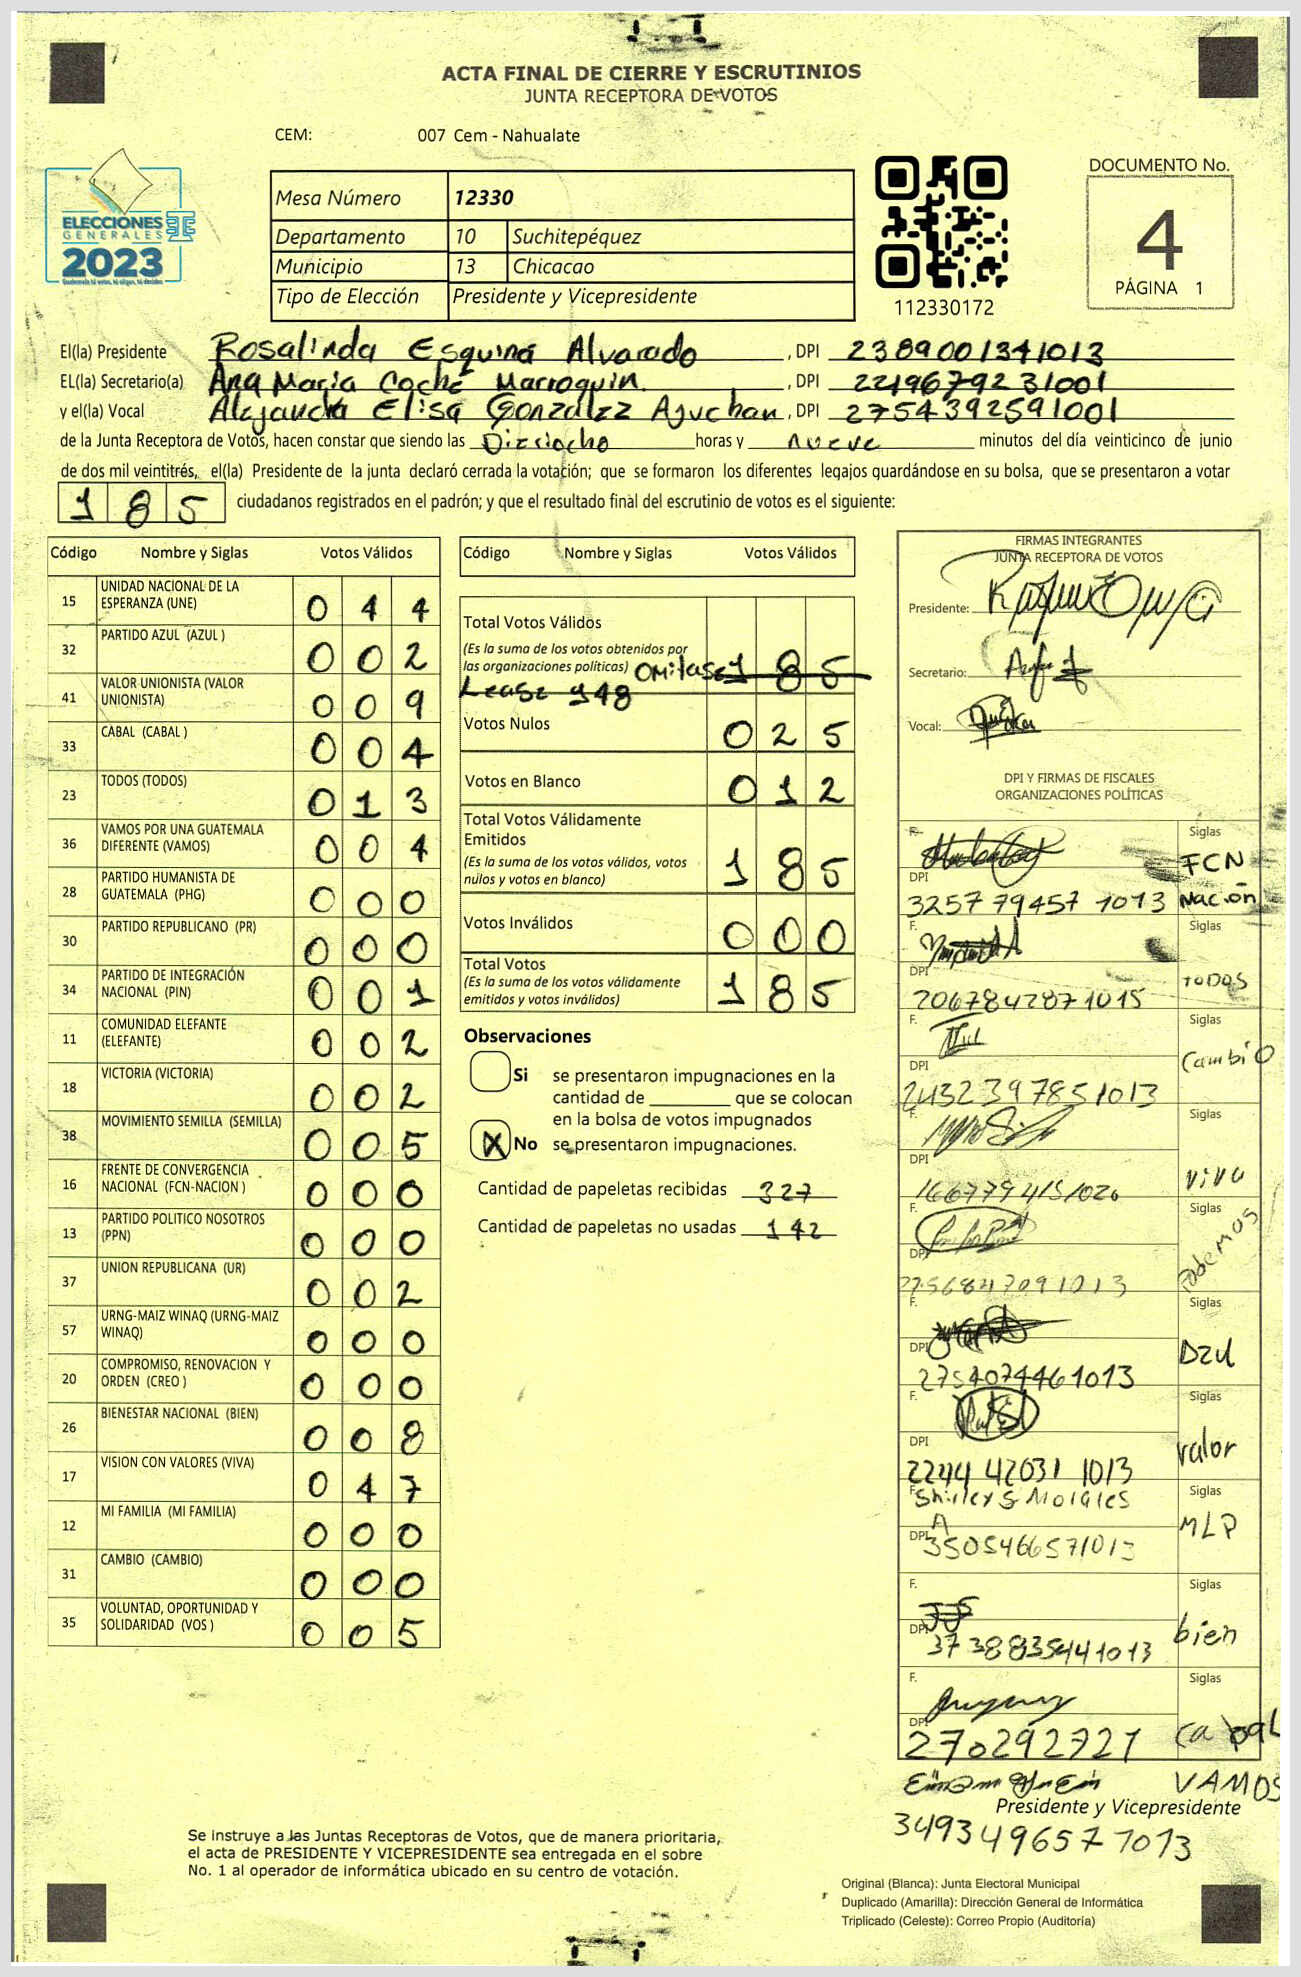 ACTA FINAL DE CIERRE Y ESCRUTINIOS
JUNTA RECEPTORA DE VOTOS
CEM: 007 Cem - Nahualate
ELECCIONES
GENERALES
2023
Mesa Número 12330
Departamento 10 Suchitepéquez
Municipio 13 Chicacao
Tipo de Elección Presidente y Vicepresidente
112330172
DOCUMENTO No.
4
PÁGINA 1
El(la) Presidente Rosalinda Esquina Alvarado , DPI 2389001341013
EL(la) Secretario(a) Ana Maria Coché Marroquin. , DPI 2219679231001
y el(la) Vocal Alejandra Elisa Gonzalez Ajuchan , DPI 2754392591001
de la Junta Receptora de Votos, hacen constar que siendo las Dieciocho horas y nueve minutos del día veinticinco de junio
de dos mil veintitrés, el(la) Presidente de la junta declaró cerrada la votación; que se formaron los diferentes legajos guardándose en su bolsa, que se presentaron a votar
185 ciudadanos registrados en el padrón; y que el resultado final del escrutinio de votos es el siguiente:
Código Nombre y Siglas Votos Válidos
15 UNIDAD NACIONAL DE LA ESPERANZA (UNE) 0 4 4
32 PARTIDO AZUL (AZUL ) 0 0 2
41 VALOR UNIONISTA (VALOR UNIONISTA) 0 0 9
33 CABAL (CABAL ) 0 0 4
23 TODOS (TODOS) 0 1 3
36 VAMOS POR UNA GUATEMALA DIFERENTE (VAMOS) 0 0 4
28 PARTIDO HUMANISTA DE GUATEMALA (PHG) 0 0 0
30 PARTIDO REPUBLICANO (PR) 0 0 0
34 PARTIDO DE INTEGRACIÓN NACIONAL (PIN) 0 0 1
11 COMUNIDAD ELEFANTE (ELEFANTE) 0 0 2
18 VICTORIA (VICTORIA) 0 0 2
38 MOVIMIENTO SEMILLA (SEMILLA) 0 0 5
16 FRENTE DE CONVERGENCIA NACIONAL (FCN-NACION ) 0 0 0
13 PARTIDO POLITICO NOSOTROS (PPN) 0 0 0
37 UNION REPUBLICANA (UR) 0 0 2
57 URNG-MAIZ WINAQ (URNG-MAIZ WINAQ) 0 0 0
20 COMPROMISO, RENOVACION Y ORDEN (CREO ) 0 0 0
26 BIENESTAR NACIONAL (BIEN) 0 0 8
17 VISION CON VALORES (VIVA) 0 4 7
12 MI FAMILIA (MI FAMILIA) 0 0 0
31 CAMBIO (CAMBIO) 0 0 0
35 VOLUNTAD, OPORTUNIDAD Y SOLIDARIDAD (VOS ) 0 0 5
Código Nombre y Siglas Votos Válidos
Total Votos Válidos
(Es la suma de los votos obtenidos por
las organizaciones políticas) Omitase 1 8 5
Lease 148
Votos Nulos 0 2 5
Votos en Blanco 0 1 2
Total Votos Válidamente
Emitidos
(Es la suma de los votos válidos, votos
nulos y votos en blanco) 1 8 5
Votos Inválidos 0 0 0
Total Votos
(Es la suma de los votos válidamente
emitidos y votos inválidos) 1 8 5
Observaciones
Si se presentaron impugnaciones en la
cantidad de ________ que se colocan
en la bolsa de votos impugnados
X No se presentaron impugnaciones.
Cantidad de papeletas recibidas 327
Cantidad de papeletas no usadas 142
FIRMAS INTEGRANTES
JUNTA RECEPTORA DE VOTOS
Presidente:
Secretario:
Vocal:
DPI Y FIRMAS DE FISCALES
ORGANIZACIONES POLÍTICAS
F. Siglas FCN Nación
DPI 3257 79457 1013
F. Siglas TODOS
DPI 2067842871015
F. Siglas Cambio
DPI 2432397851013
F. Siglas VIVA
DPI 1667794151020
F. Siglas Podemos
DPI 2756847091013
F. Siglas Azul
DPI 2754074461013
F. Siglas Valor
DPI 2244 42031 1013
F. Shirley S Morales A Siglas MLP
DPI 3505466571013
F. Siglas bien
DPI 3738835441013
F. Siglas Cabal
DPI 270292721
VAMOS
Presidente y Vicepresidente
3493496577013
Se instruye a las Juntas Receptoras de Votos, que de manera prioritaria,
el acta de PRESIDENTE Y VICEPRESIDENTE sea entregada en el sobre
No. 1 al operador de informática ubicado en su centro de votación.
Original (Blanca): Junta Electoral Municipal
Duplicado (Amarilla): Dirección General de Informática
Triplicado (Celeste): Correo Propio (Auditoría)